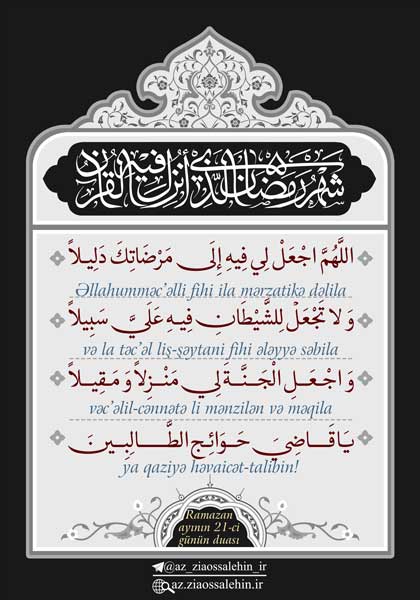 شَهْرُ رَمَضَانَ الَّذِي أُنْزِلَ فِيهِ الْقُرْآنُ
اللَّهُمَّ اجْعَلْ لِي فِيهِ إِلَى مَرْضَاتِكَ دَلِيلاً
Əllahumməc'əlli fihi ila mərzatikə dəlila
وَ لا تَجْعَلْ لِلشَّيْطَانِ فِيهِ عَلَيَّ سَبِيلاً
və la təc'əl liş-şəytani fihi ələyyə səbila
وَ اجْعَلِ الْجَنَّةَ لِي مَنْزِلاً وَ مَقِيلاً
vəc'əlil-cənnətə li mənzilən və məqila
يَا قَاضِيَ حَوَائِجِ الطَّالِبِينَ
ya qaziyə həvaicət-talibin!
Ramazan
ayının 21-ci
günün duası
@az_ziaossalehin_ir
az.ziaossalehin.ir